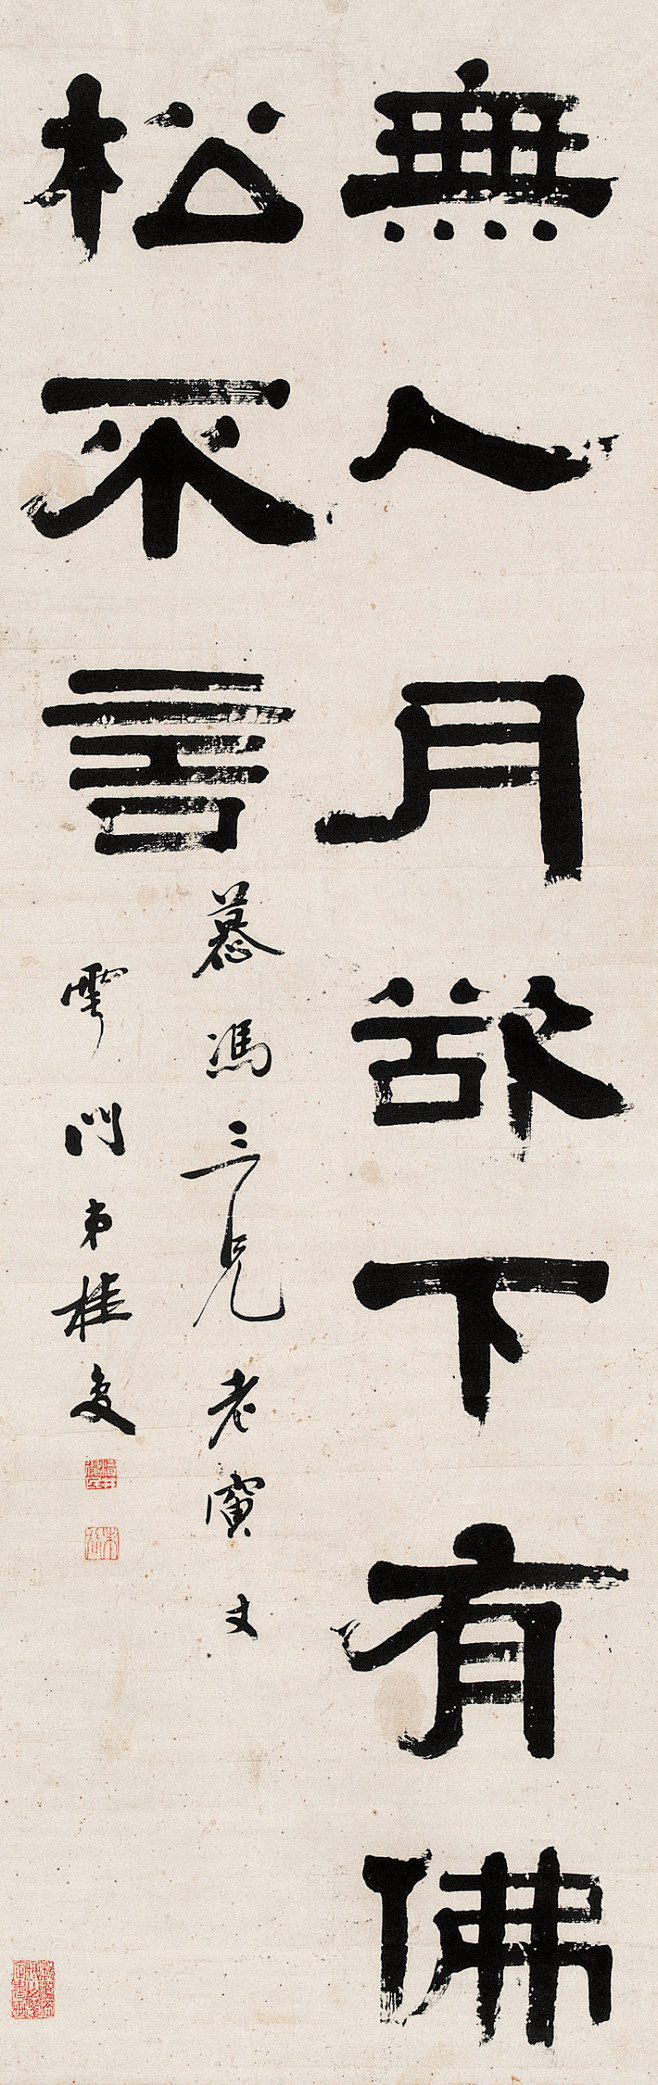 無人月欲下有佛
松不言
慕馮三兄老寅丈
雲門弟桂